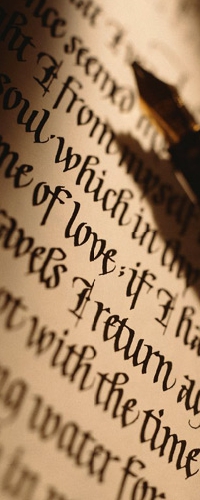 that I
nce seemed m
ght I from myself
soul, which in thy
me of love; if I ha
avels I return ag
ot with the time
ng water for
in m